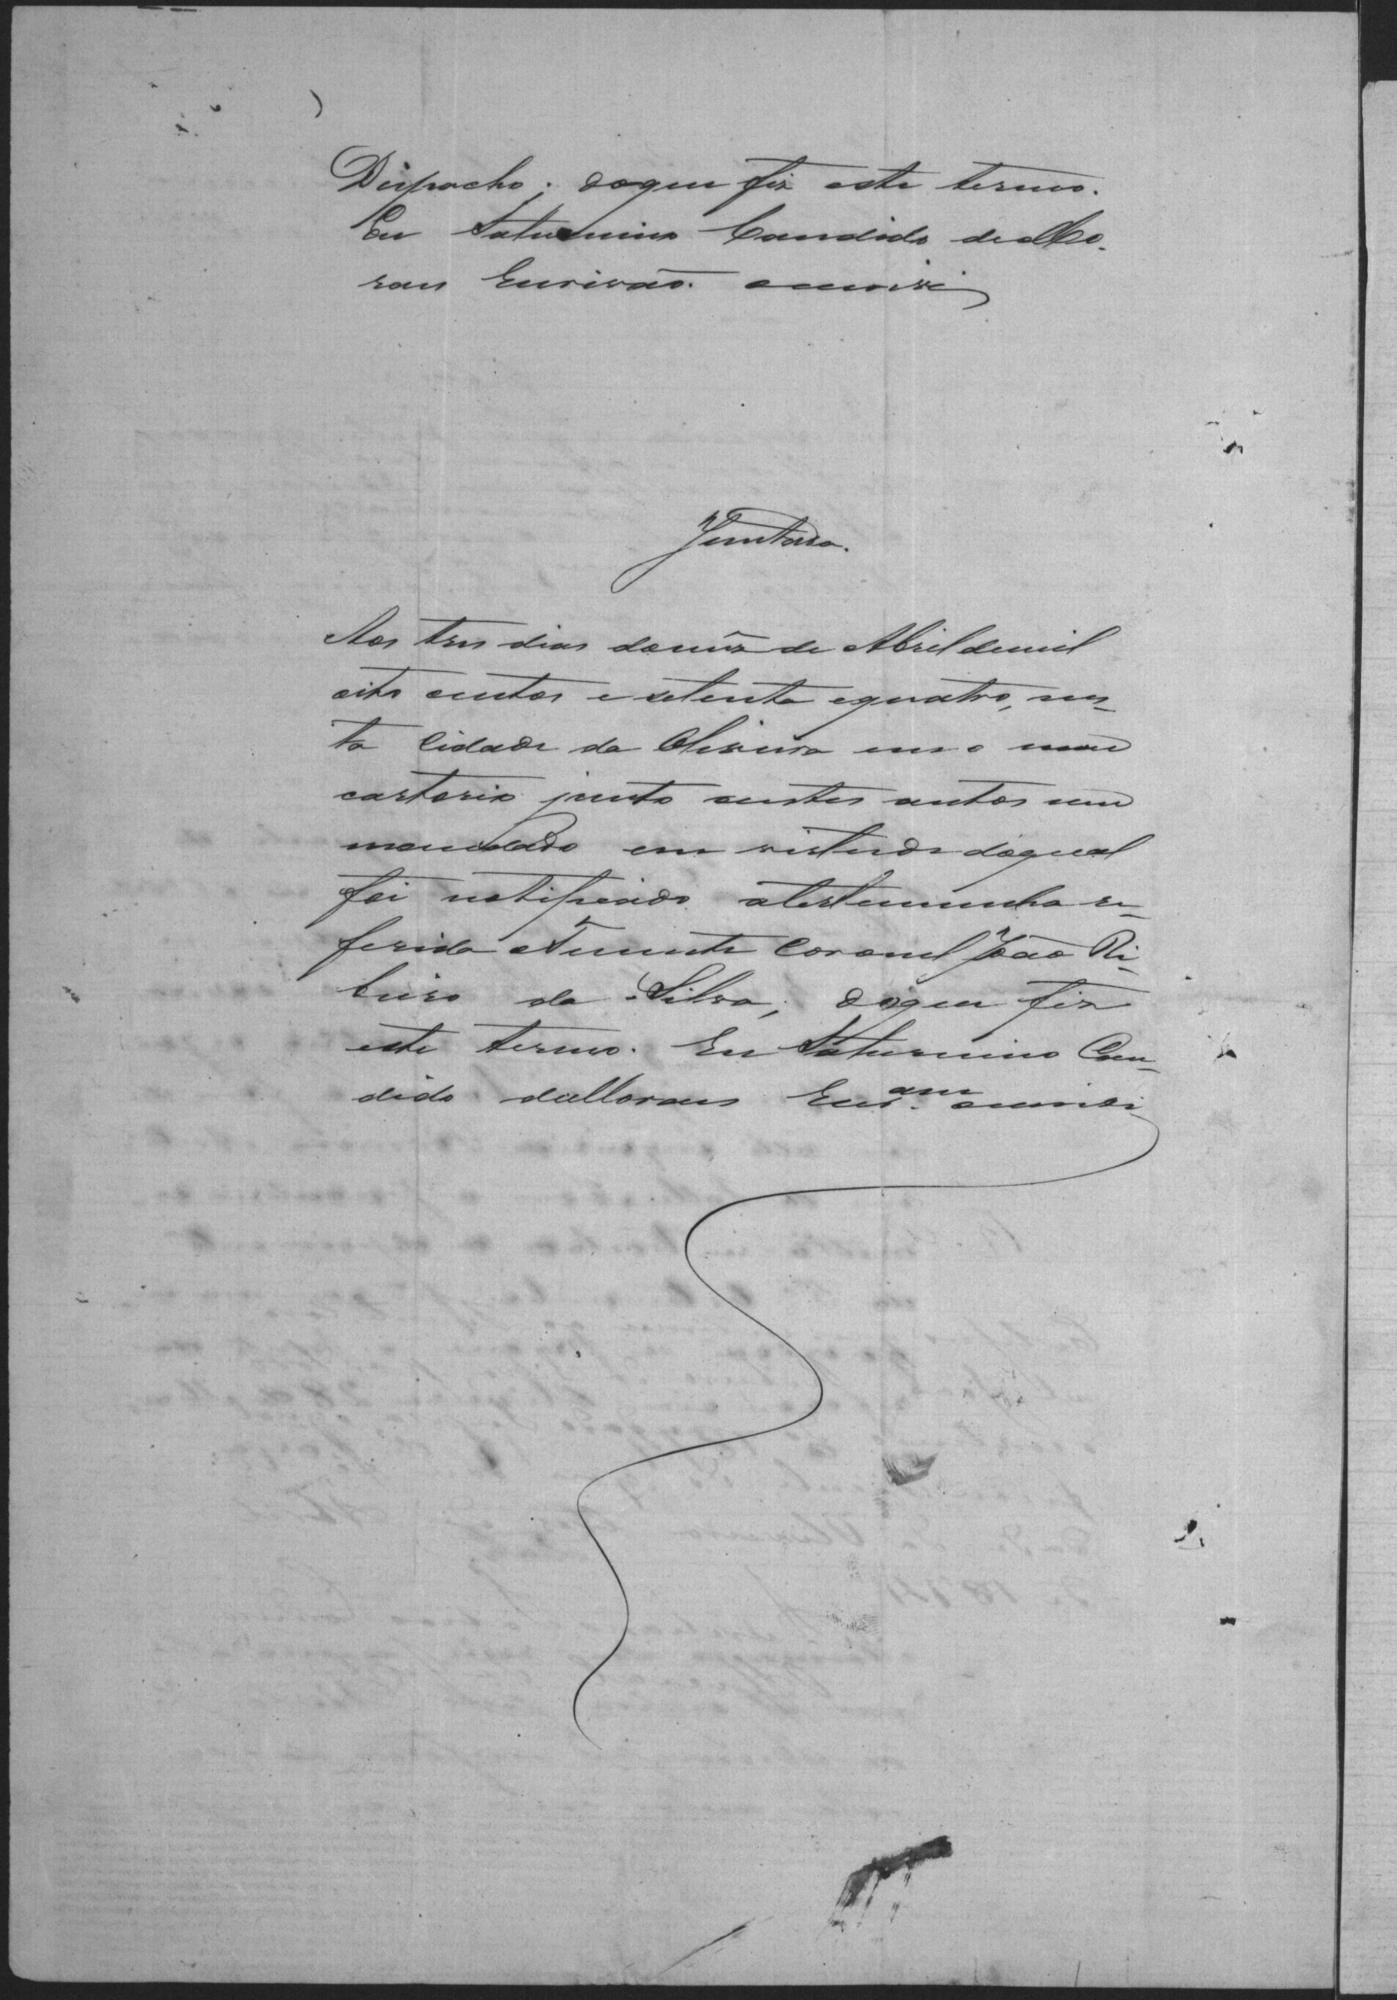 Despacho; doque fiz este termo.
Eu Saturnino Candido de Mo-
raes Escrivão. escrevi
Juntada.
Aos tres dias domez de Abril demil
oito centos e setenta equatro, nes-
ta Cidade da Oliveira em o meu
cartorio junto aestes autos um
mandado em virtude doqual
foi notificado atestemunha re-
ferida oTenente Coronel João Ri-
beiro da Silva; doque fiz
este termo. Eu Saturnino Can-
dido deMoraes Escr.am escrevi